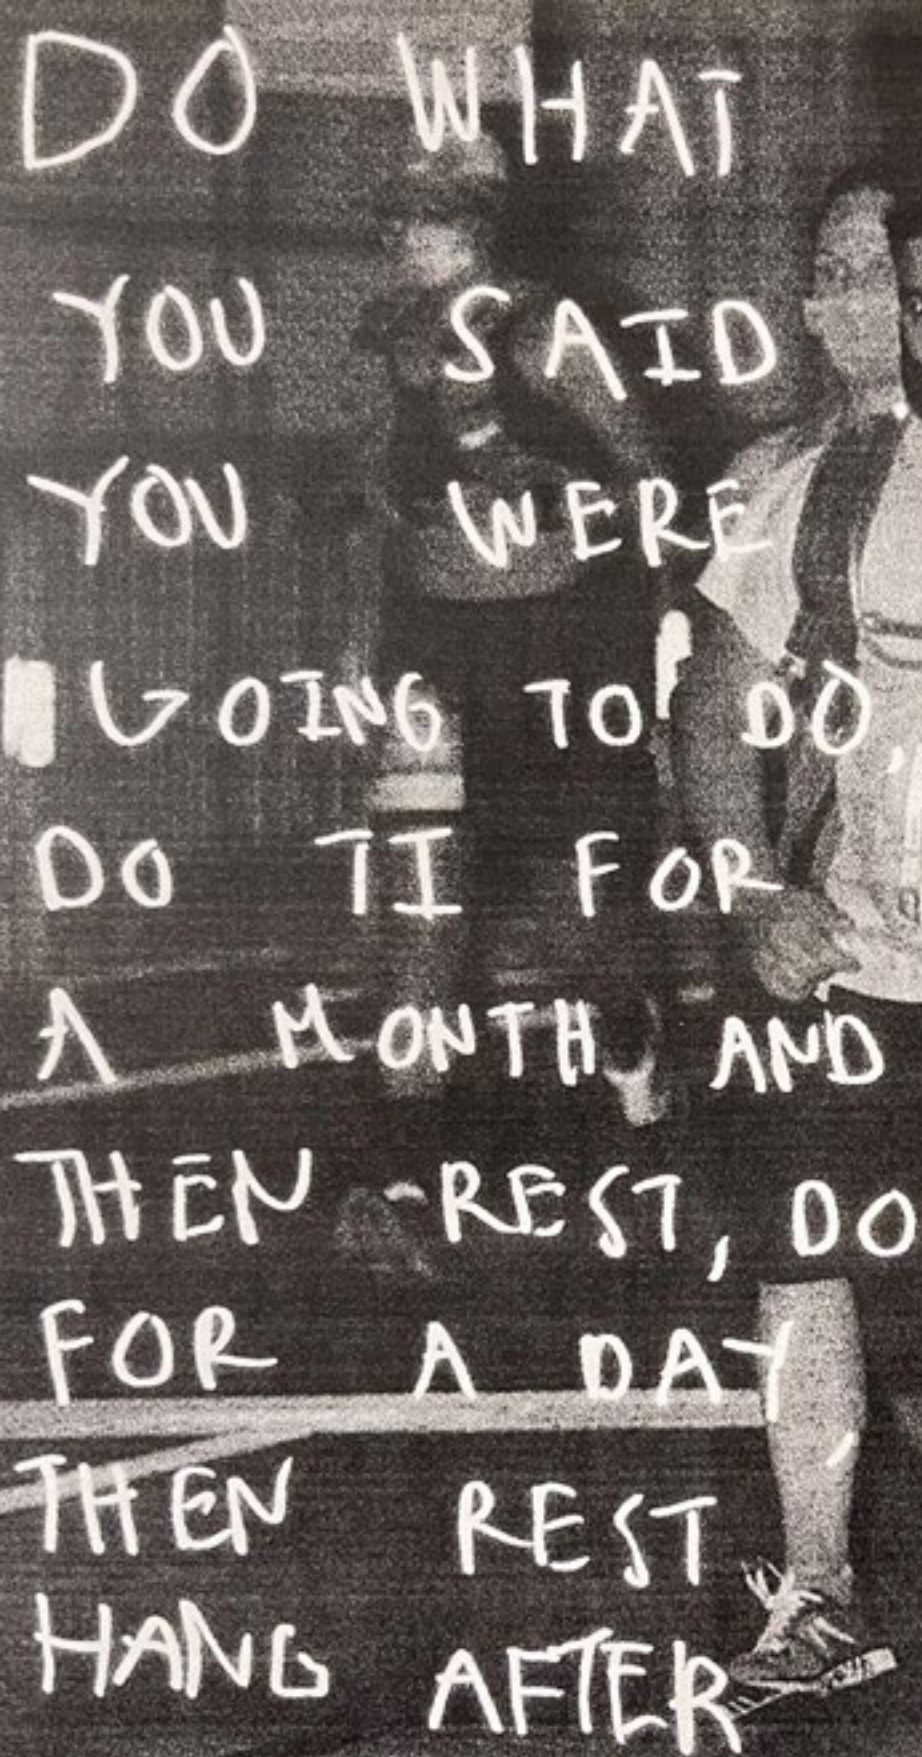 DO WHAT
YOU SAID
YOU WERE
GOING TO DO,
DO TI FOR
A MONTH AND
THEN REST, DO
FOR A DAY,
THEN REST
HANG AFTER